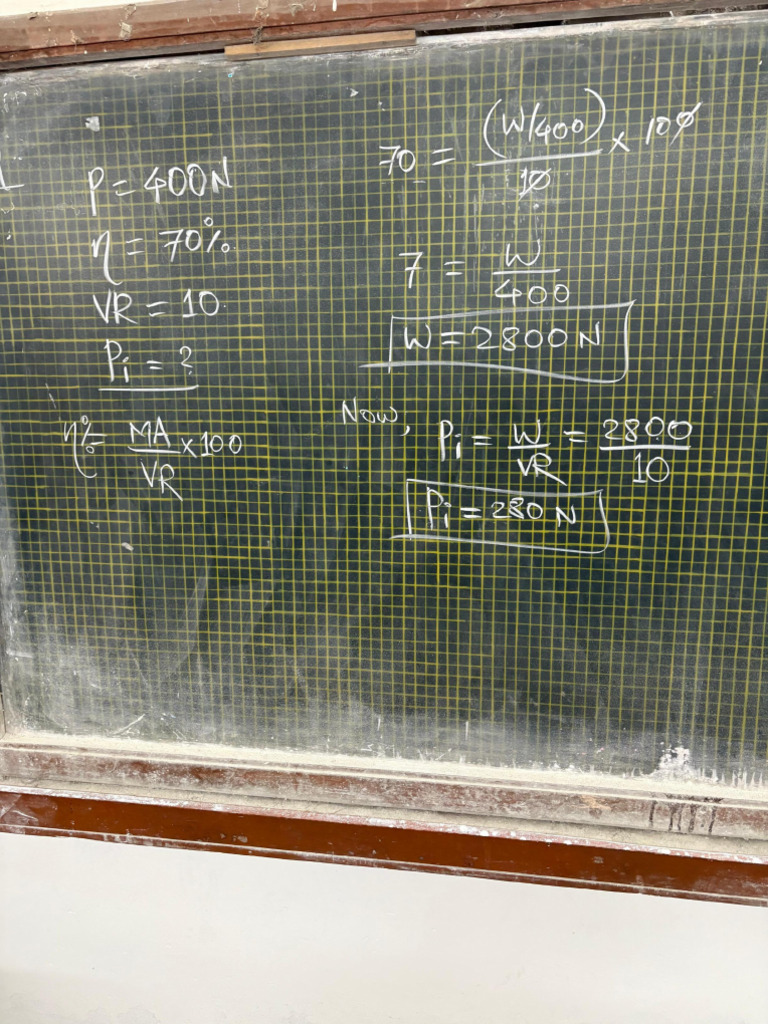 P = 400N
η = 70%.
VR = 10.
Pi = ?
η% = MA/VR × 100
70 = (W/400)/10 × 100
7 = W/400
W = 2800 N
Now, Pi = W/VR = 2800/10
Pi = 280 N